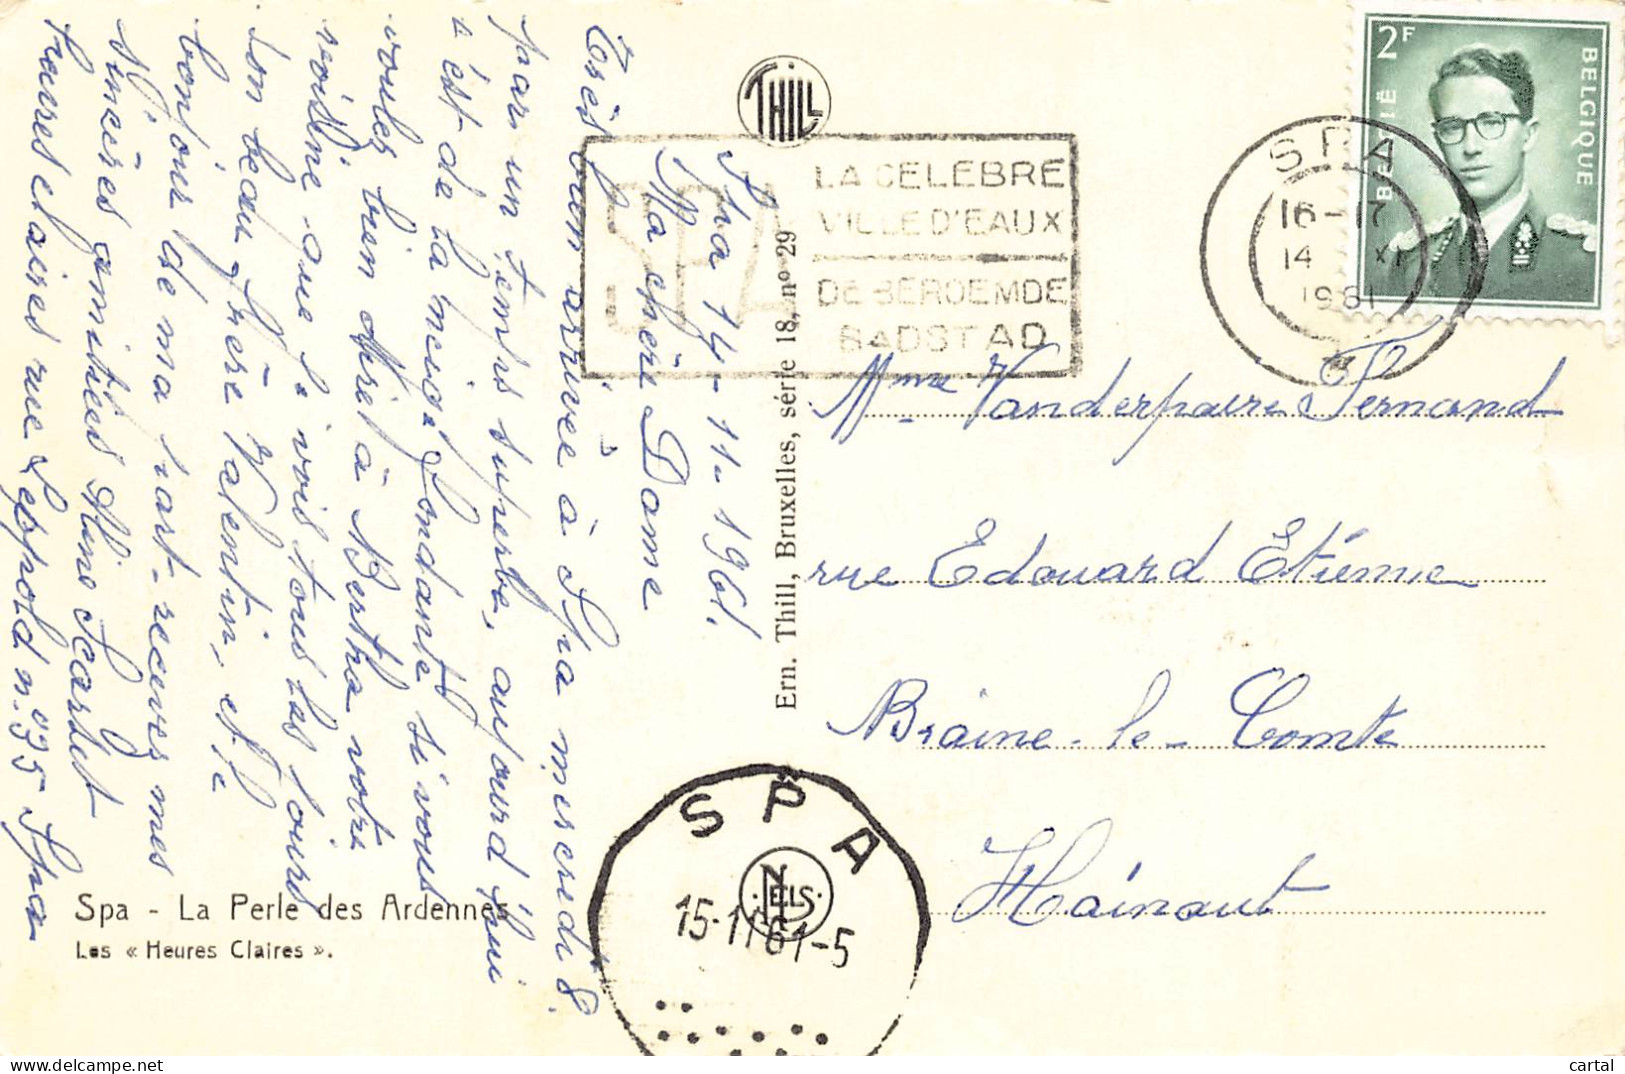 Spa 14-11-1961.
Ma chère Dame
Très bien arrivée à Spa mercredi 8,
par un temps superbe, aujourd'hui
c'est de la neige fondante si vous
voulez bien dire à Bertha votre
voisine que je vois tous les jours
son beau frère Valentin, et
bonjour de ma part - recevez mes
sincères amitiés Aline Scarset
heures claires rue Léopold n° 35 Spa
Spa - La Perle des Ardennes
Les « Heures Claires ».
THILL
Ern. Thill, Bruxelles, série 18, n° 29
NELS
SPA
LA CELEBRE
VILLE D'EAUX
DE BEROEMDE
BADSTAD
SPA
16-17
14 XI
1961
2F
BELGIË
BELGIQUE
Mme Vanderpaere Fernand
rue Edouard Etiénne
Braine-le-Comte
Hainaut
SPA
15-11 61-5
cartal